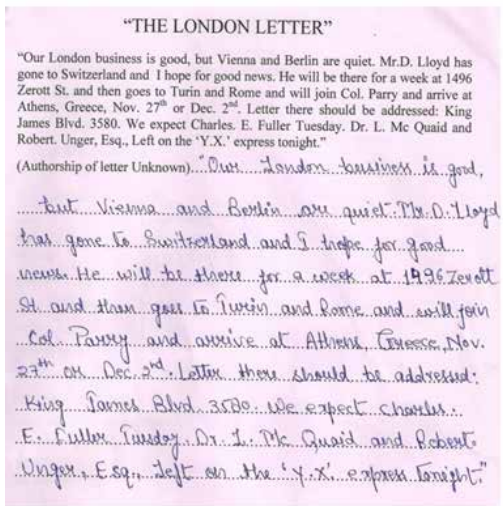 “THE LONDON LETTER”
“Our London business is good, but Vienna and Berlin are quiet. Mr.D. Lloyd has
gone to Switzerland and I hope for good news. He will be there for a week at 1496
Zerott St. and then goes to Turin and Rome and will join Col. Parry and arrive at
Athens, Greece, Nov. 27th or Dec. 2nd. Letter there should be addressed: King
James Blvd. 3580. We expect Charles. E. Fuller Tuesday. Dr. L. Mc Quaid and
Robert. Unger, Esq., Left on the ‘Y.X.’ express tonight.”
(Authorship of letter Unknown). "Our London business is good,
but Vienna and Berlin are quiet. Mr. D. Lloyd
has gone to Switzerland and I hope for good
news. He will be there for a week at 1996 Zerott
St. and then goes to Turin and Rome and will join
Col. Parry and arrive at Athens, Greece, Nov.
27th or Dec. 2nd. Letter there should be addressed:
King James Blvd. 3580. We expect charles.
E. Fuller Tuesday. Dr. L. Mc Quaid and Robert.
Unger, Esq., Left on the 'Y.X'. express Tonight."